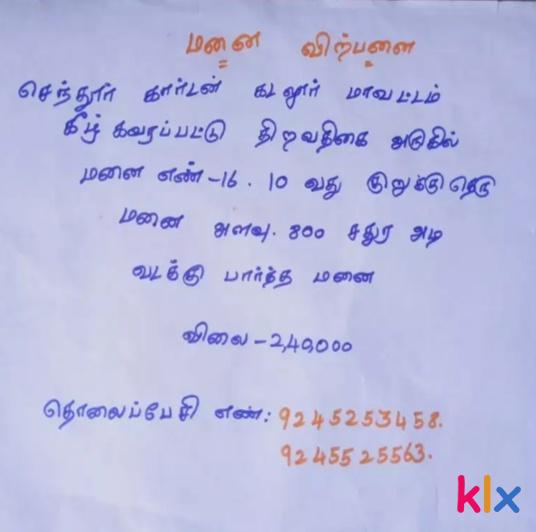 மனை விற்பனை
செந்தூர் கார்டன் கடலூர் மாவட்டம்
கீழ் கவரப்பட்டு திருவதிகை அருகில்
மனை எண் - 16. 10 வது குறுக்கு தெரு
மனை அளவு. 800 சதுர அடி
வடக்கு பார்த்த மனை
விலை - 2,40,000
தொலைப்பேசி எண்: 9245253458.
9245525563.
klx